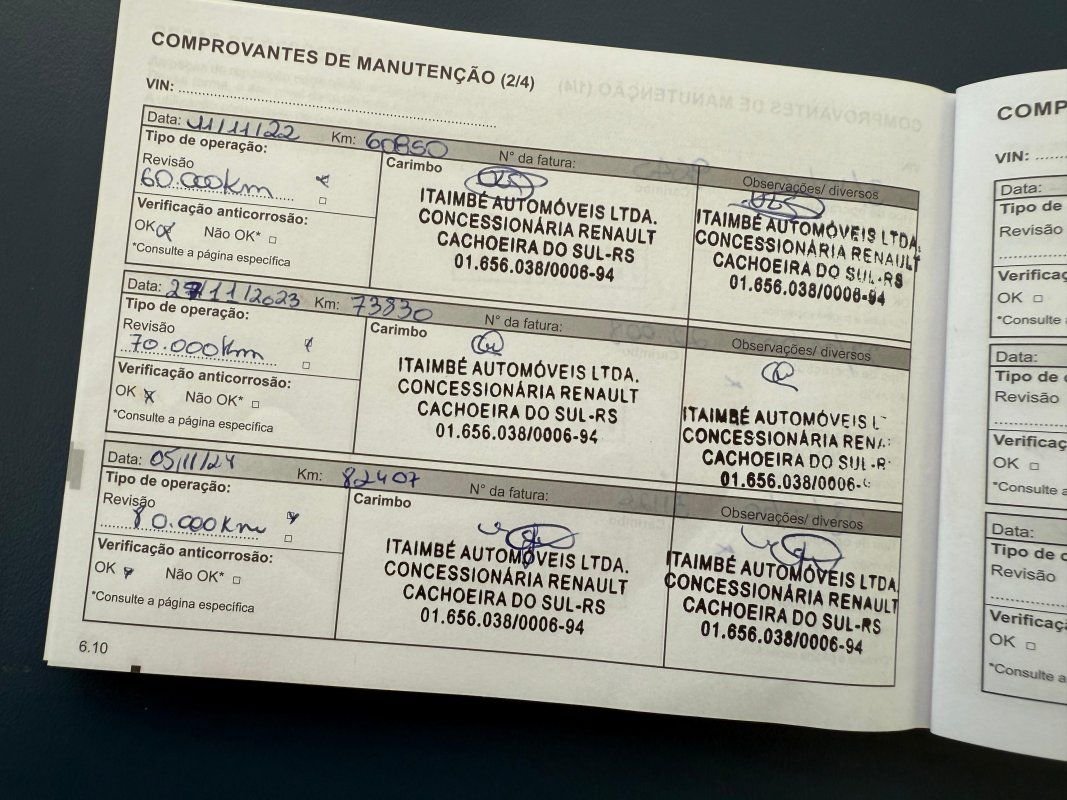 COMPROVANTES DE MANUTENÇÃO (2/4)
VIN:
Data: 11/11/22 Km: 60850 N° da fatura:
Tipo de operação:
Revisão
60.000km
Verificação anticorrosão:
OK Não OK*
*Consulte a página específica
Carimbo
ITAIMBÉ AUTOMÓVEIS LTDA.
CONCESSIONÁRIA RENAULT
CACHOEIRA DO SUL-RS
01.656.038/0006-94
Observações/ diversos
ITAIMBÉ AUTOMÓVEIS LTDA.
CONCESSIONÁRIA RENAULT
CACHOEIRA DO SUL-RS
01.656.038/0006-94
Data: 27/11/2023 Km: 73830 N° da fatura:
Tipo de operação:
Revisão
70.000km
Verificação anticorrosão:
OK Não OK*
*Consulte a página específica
Carimbo
ITAIMBÉ AUTOMÓVEIS LTDA.
CONCESSIONÁRIA RENAULT
CACHOEIRA DO SUL-RS
01.656.038/0006-94
Observações/ diversos
ITAIMBÉ AUTOMÓVEIS L
CONCESSIONÁRIA RENA
CACHOEIRA DO SUL-R
01.656.038/0006-
Data: 05/11/24 Km: 82407 N° da fatura:
Tipo de operação:
Revisão
80.000km
Verificação anticorrosão:
OK Não OK*
*Consulte a página específica
Carimbo
ITAIMBÉ AUTOMÓVEIS LTDA.
CONCESSIONÁRIA RENAULT
CACHOEIRA DO SUL-RS
01.656.038/0006-94
Observações/ diversos
ITAIMBÉ AUTOMÓVEIS LTDA.
CONCESSIONÁRIA RENAULT
CACHOEIRA DO SUL-RS
01.656.038/0006-94
6.10
COMP
VIN:
Data:
Tipo de
Revisão
Verificaç
OK
*Consulte a
Data:
Tipo de o
Revisão
Verificaç
OK
*Consulte a
Data:
Tipo de o
Revisão
Verificaç
OK
*Consulte a